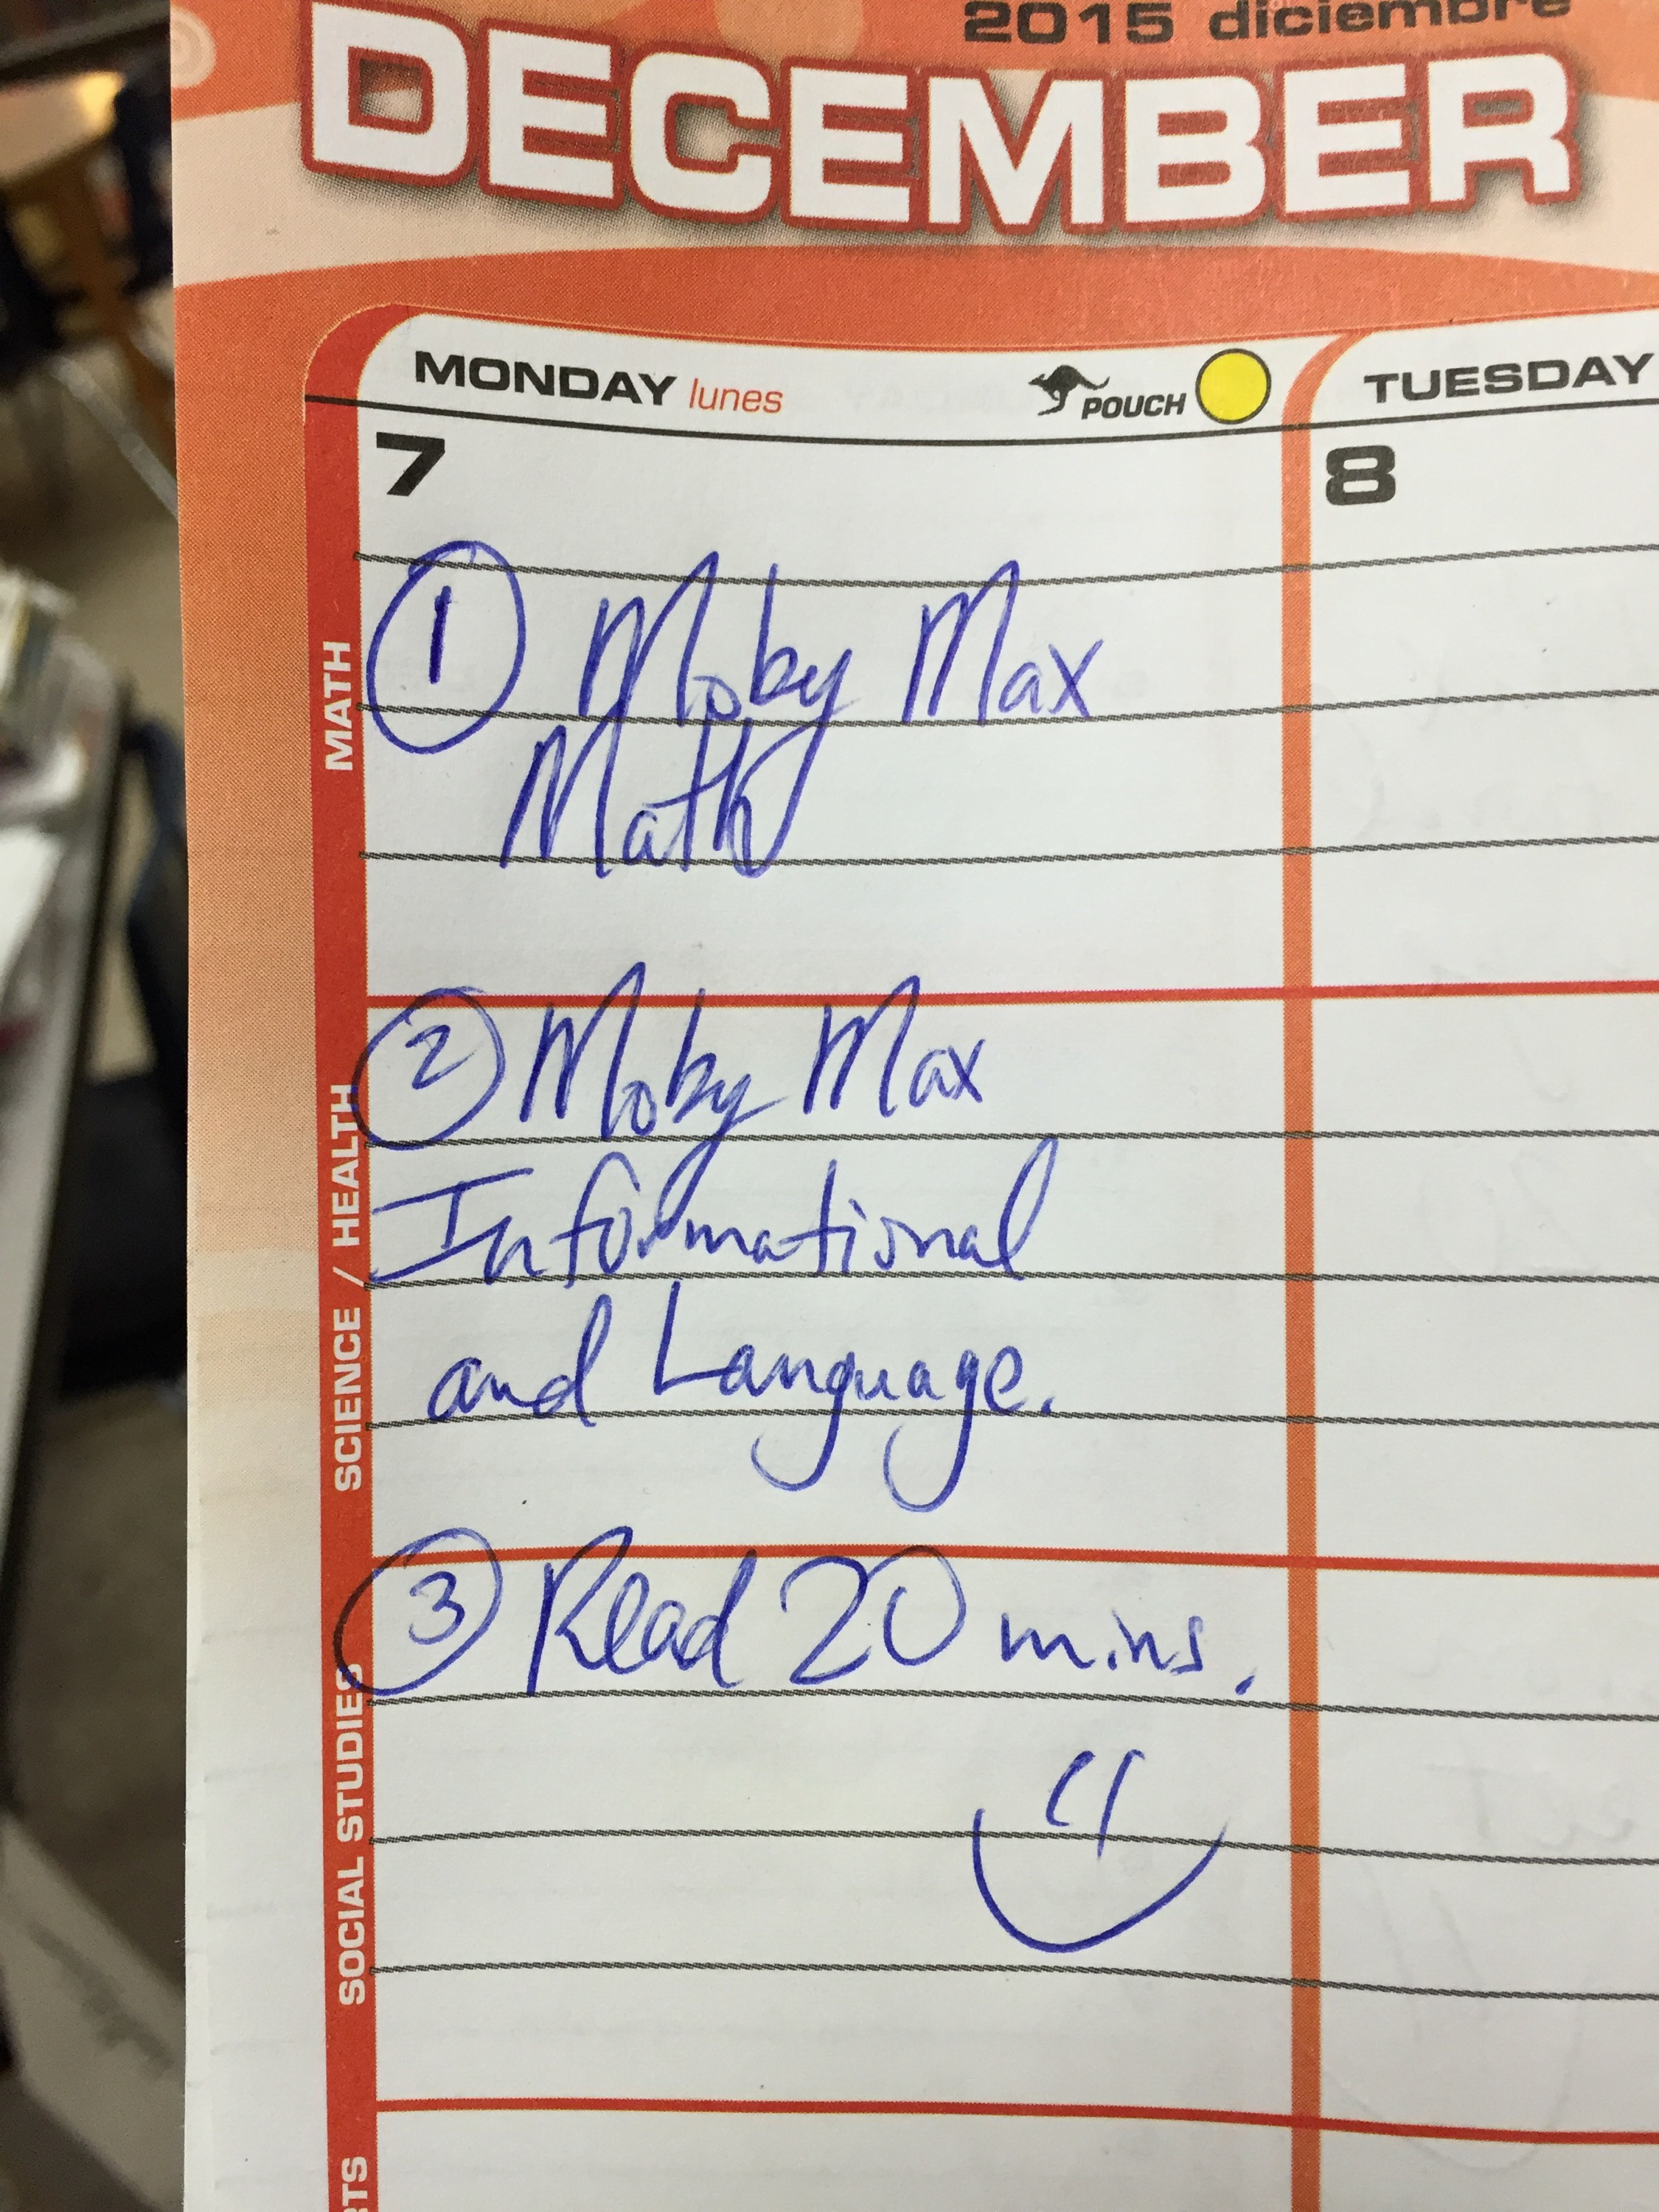 2015 diciembre
DECEMBER
MONDAY lunes POUCH TUESDAY
7 8
MATH
① Moby Max
Math
SCIENCE / HEALTH
② Moby Max
Informational
and Language.
SOCIAL STUDIES
③ Read 20 mins.